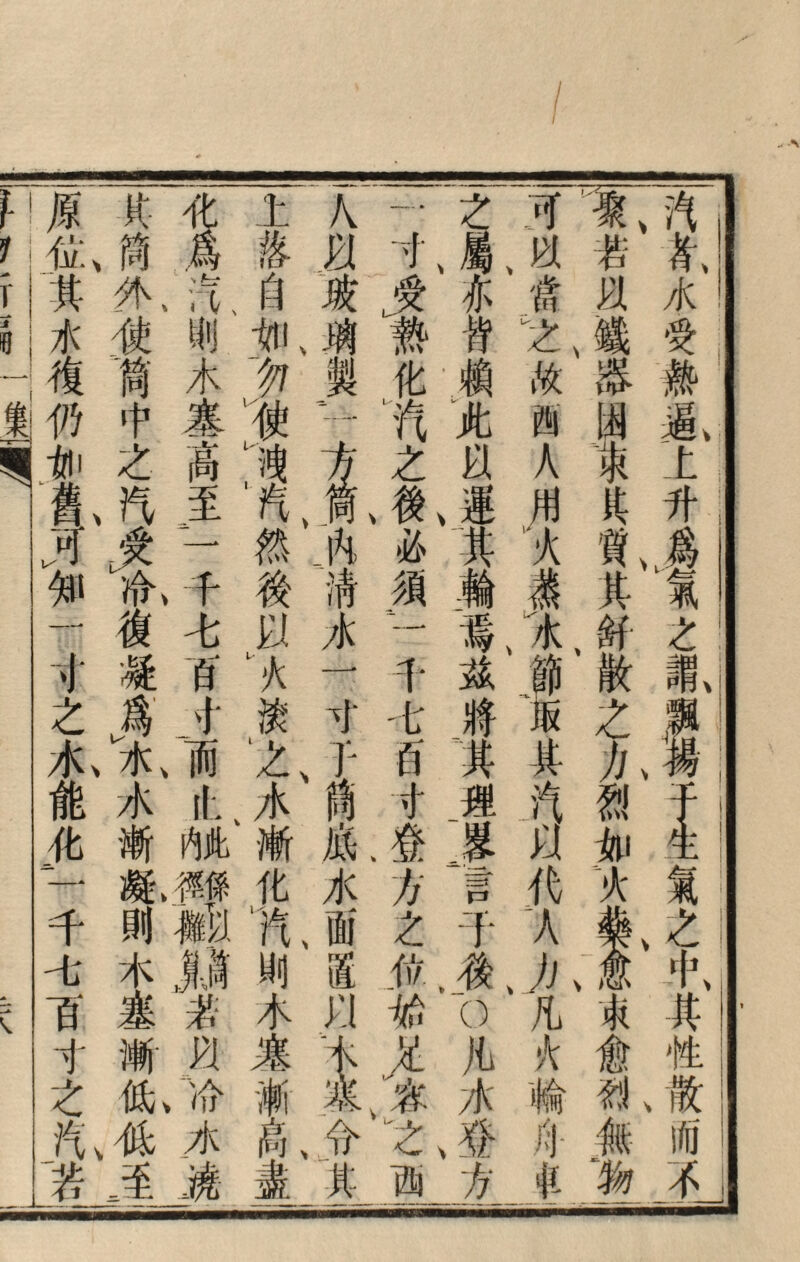 汽者、水受熱逼、上升爲氣之謂、飄揚于生氣之中、其性散而不
聚、若以鐵器困束其質、其舒散之力、烈如火藥、愈束愈烈、無物
可以當之、故西人用火蒸水、節取其汽以代人力、凡火輪舟車
之屬、亦皆賴此以運其輪焉、茲將其理畧言于後、○凡水登方
一寸、受熱化汽之後、必須一千七百寸登方之位、始足容之、西
人以玻璃製一方筒、內清水一寸于筒底、水面置以木塞、令其
上落自如、勿使洩汽、然後以火滚之、水漸化汽、則木塞漸高、盡
化爲汽、則木塞高至一千七百寸而止、此係以筒內徑攤算、若以冷水澆
其筒外、使筒中之汽受冷、復凝爲水、水漸凝、則木塞漸低、低至
原位、其水復仍如舊、可知一寸之水、能化一千七百寸之汽、若
博物新編 一集